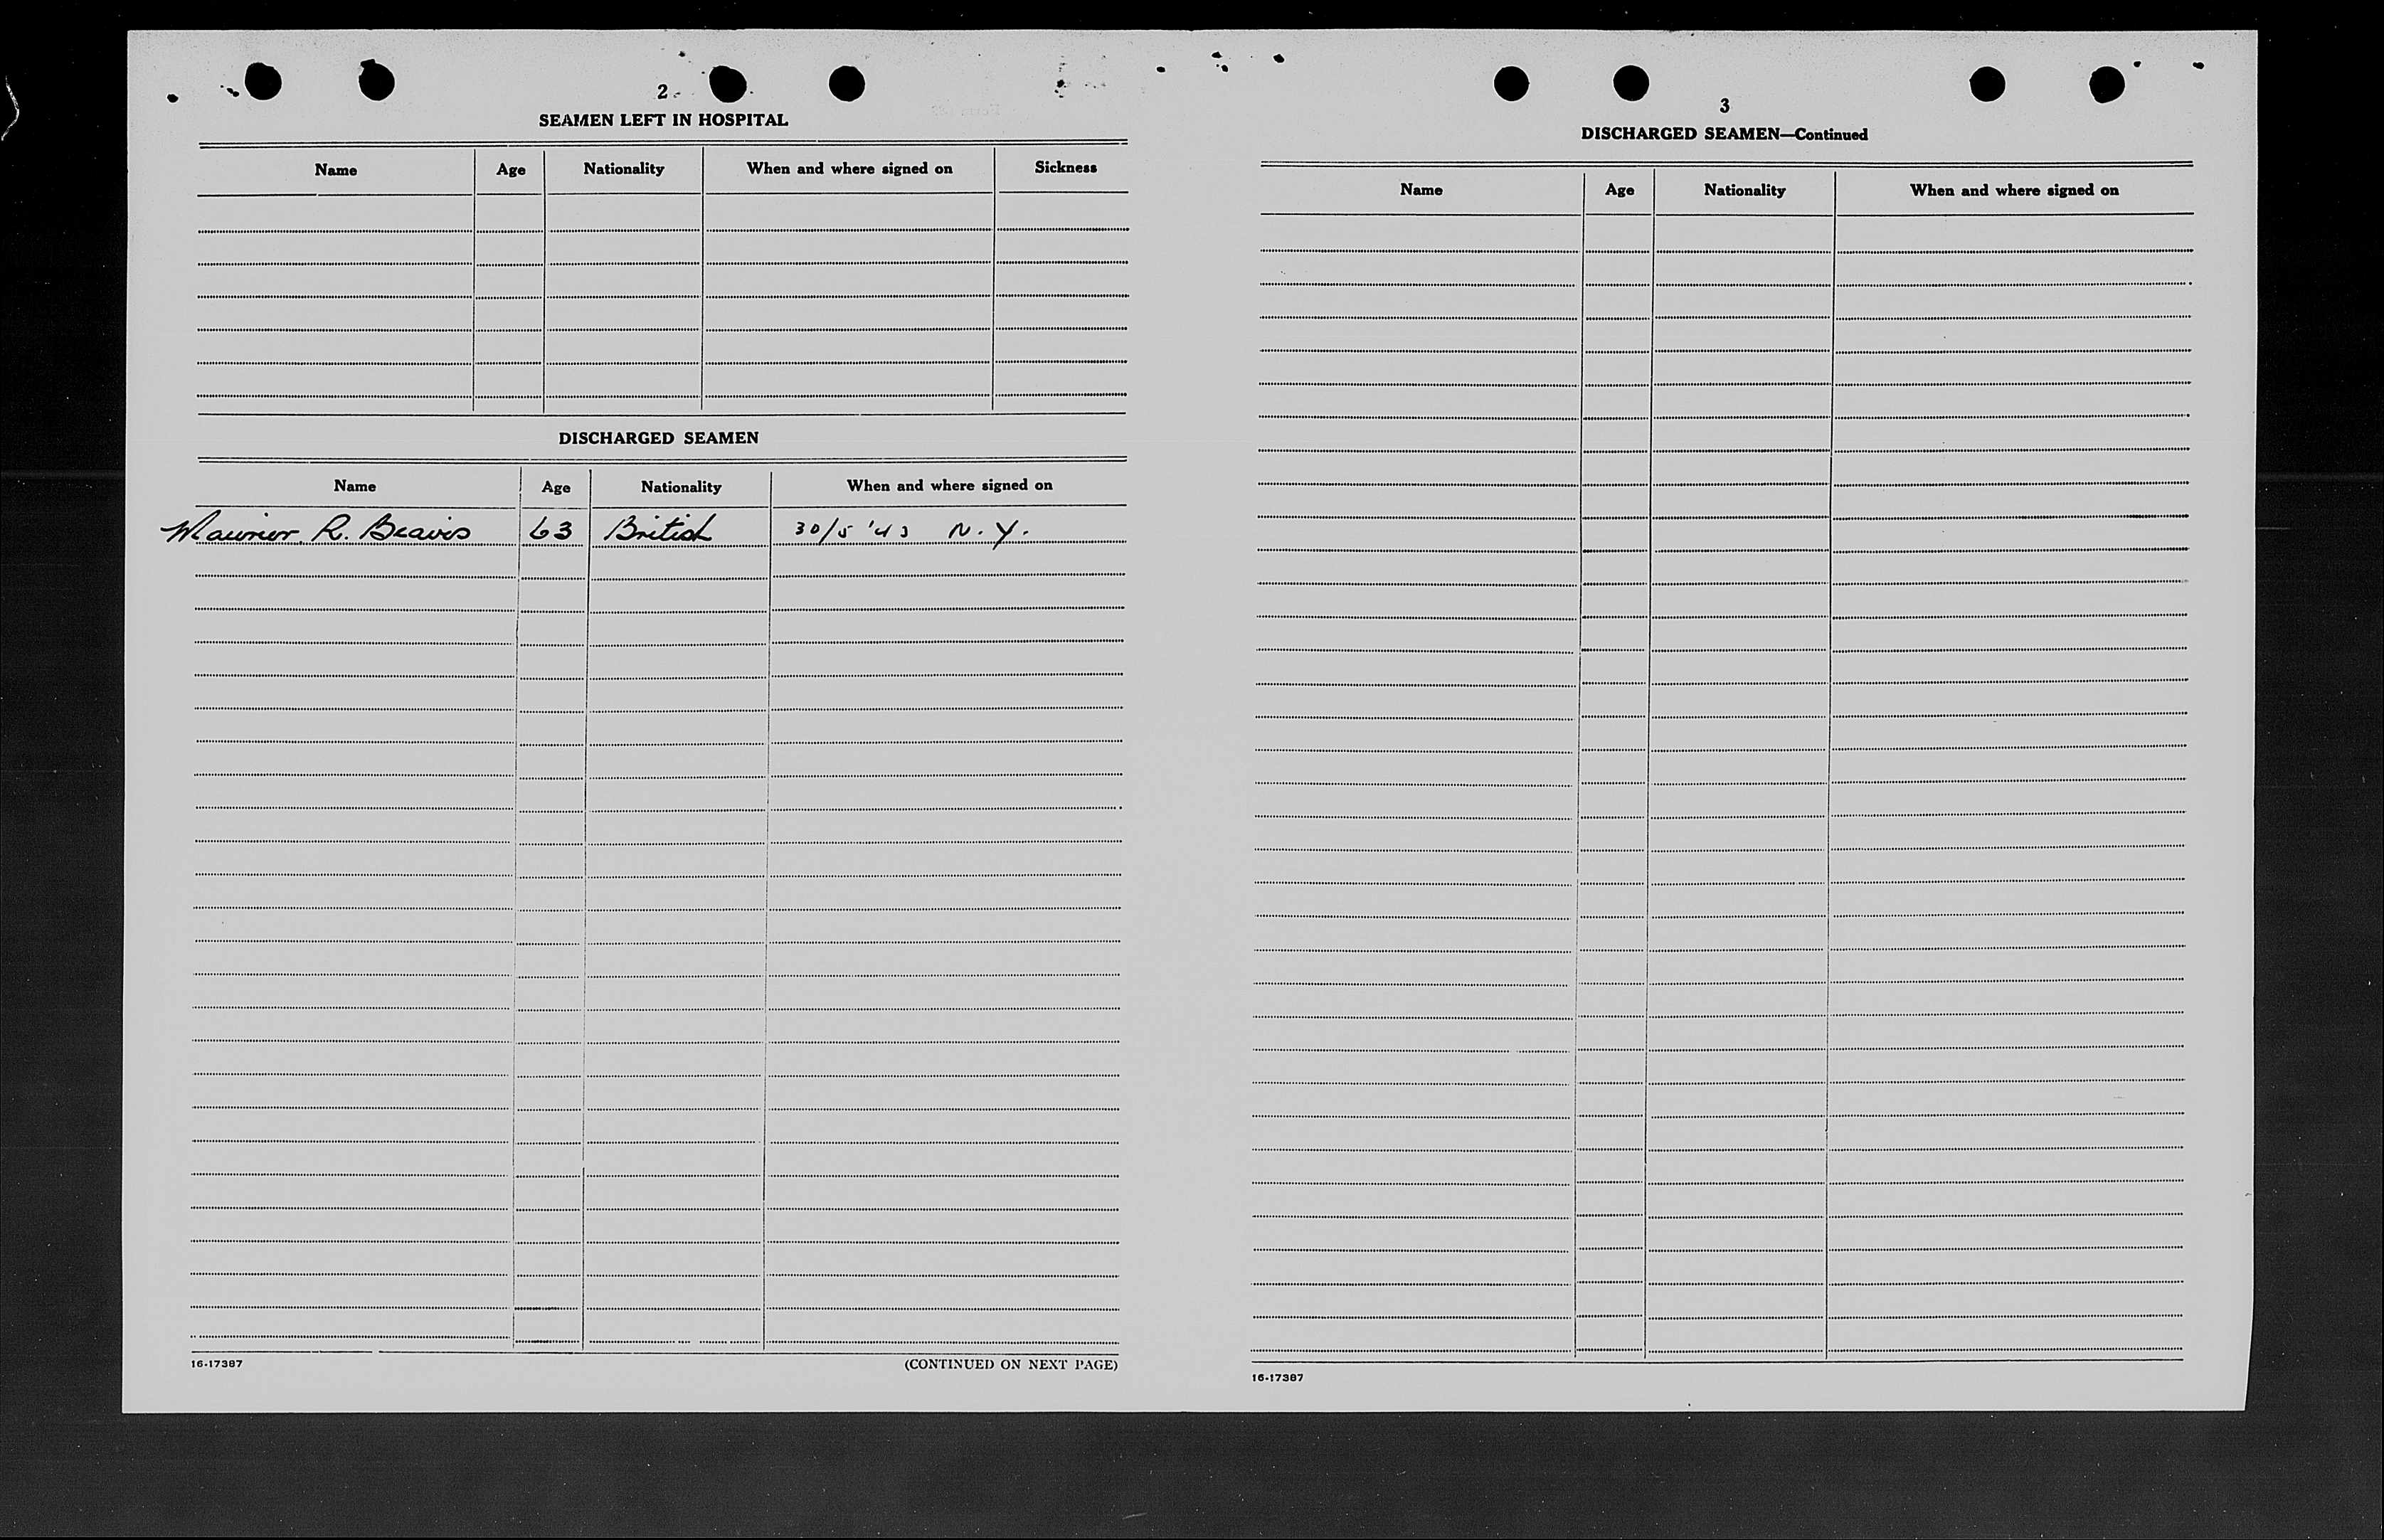 2
SEAMEN LEFT IN HOSPITAL
Name Age Nationality When and where signed on Sickness
DISCHARGED SEAMEN
Name Age Nationality When and where signed on
R. Beavis 63 British 30/5 '43 N.Y.
16-17387 (CONTINUED ON NEXT PAGE)
3
DISCHARGED SEAMEN—Continued
Name Age Nationality When and where signed on
16-17387